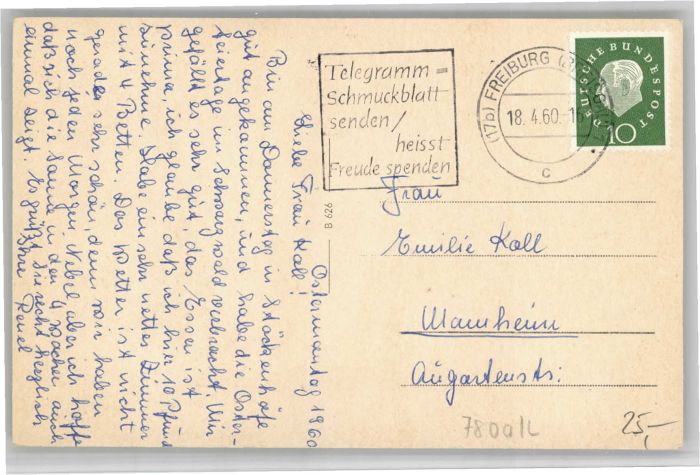 Ostermontag 1960
Liebe Frau Kall!
Bin am Donnerstag in Stöckenhöfe
gut angekommen, und habe die Oster-
feiertage im Schwarzwald verbracht. Mir
gefällt es sehr gut, das Essen ist
prima, ich glaube daß ich hier 10 Pfund
zunehme. Habe ein sehr nettes Zimmer
mit 4 Betten. Das Wetter ist nicht
gerade sehr schön, denn wir haben
noch jeden Morgen Nebel aber ich hoffe
daß sich die Sonne in den 4 Wochen auch
einmal zeigt. Es grüßt Sie recht herzlich
Ihre
Telegramm =
Schmuckblatt
senden /
heisst
Freude spenden
(17b) FREIBURG
18. 4. 60.
c
DEUTSCHE BUNDESPOST
10
929 B
Frau
Emilie Kall
Mannheim
Augartenstr.
25,-